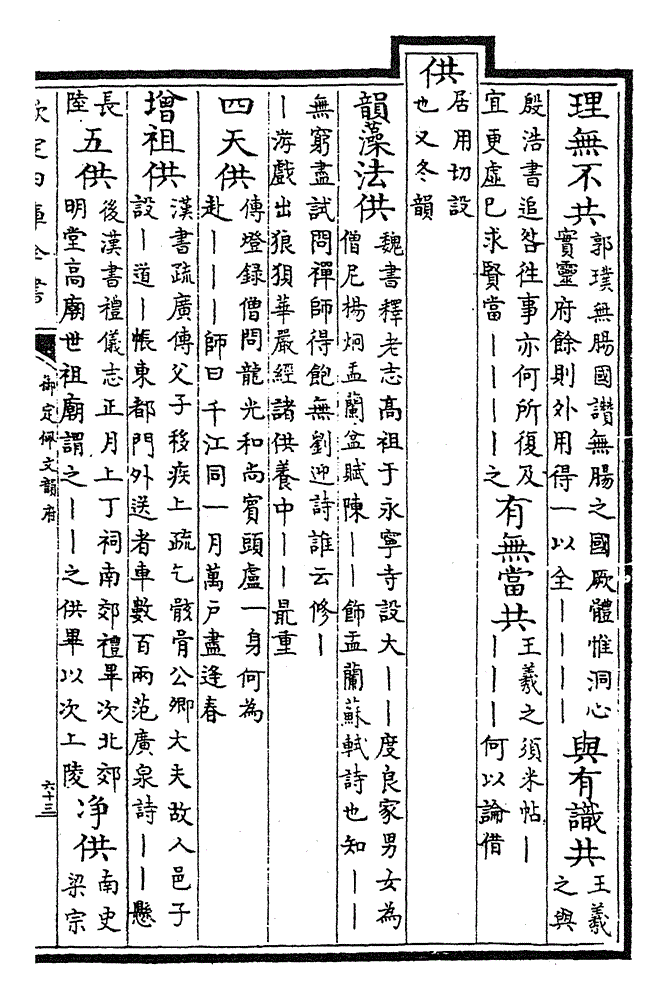 理無不共郭璞無腸國讚無腸之國厥體惟洞心實靈府餘則外用得一以全丨丨丨丨與有識共王羲之與
殷浩書追咎徃事亦何所復及宜更虛已求賢當丨丨丨丨之有無當共王羲之須米帖丨丨丨丨何以論借
供居用切設也又冬韻
韻藻法供魏書釋老志高祖于永寧寺設大丨丨度良家男女為僧尼楊炯盂蘭盆賦陳丨丨飾盂蘭蘇軾詩也知丨丨
無窮盡試問禪師得飽無劉迎詩誰云修丨丨游戲出狼狽華嚴經諸供養中丨丨最重
四天供傳燈錄僧問龍光和尚賓頭盧一身何為赴丨丨丨師曰千江同一月萬户盡逢春
增祖供漢書疏廣傳父子移疾上疏乞骸骨公卿大夫故人邑子設丨道丨帳東都門外送者車數百兩范廣泉詩丨丨懸
長陸五供後漢書禮儀志正月上丁祠南郊禮畢次北郊明堂高廟世祖廟謂之丨丨之供畢以次上陵净供南史梁宗
欽定四庫全書
御定佩文韻府
六十三